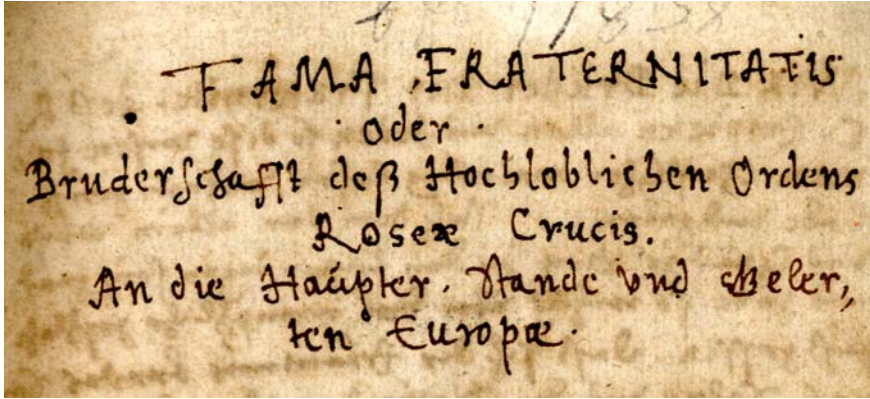 FAMA FRATERNITATIS
oder
Bruderschafft deß Hochloblichen Ordens
Roseæ Crucis.
An die Haüpter. Stande vnd Geler,,
ten Europæ.